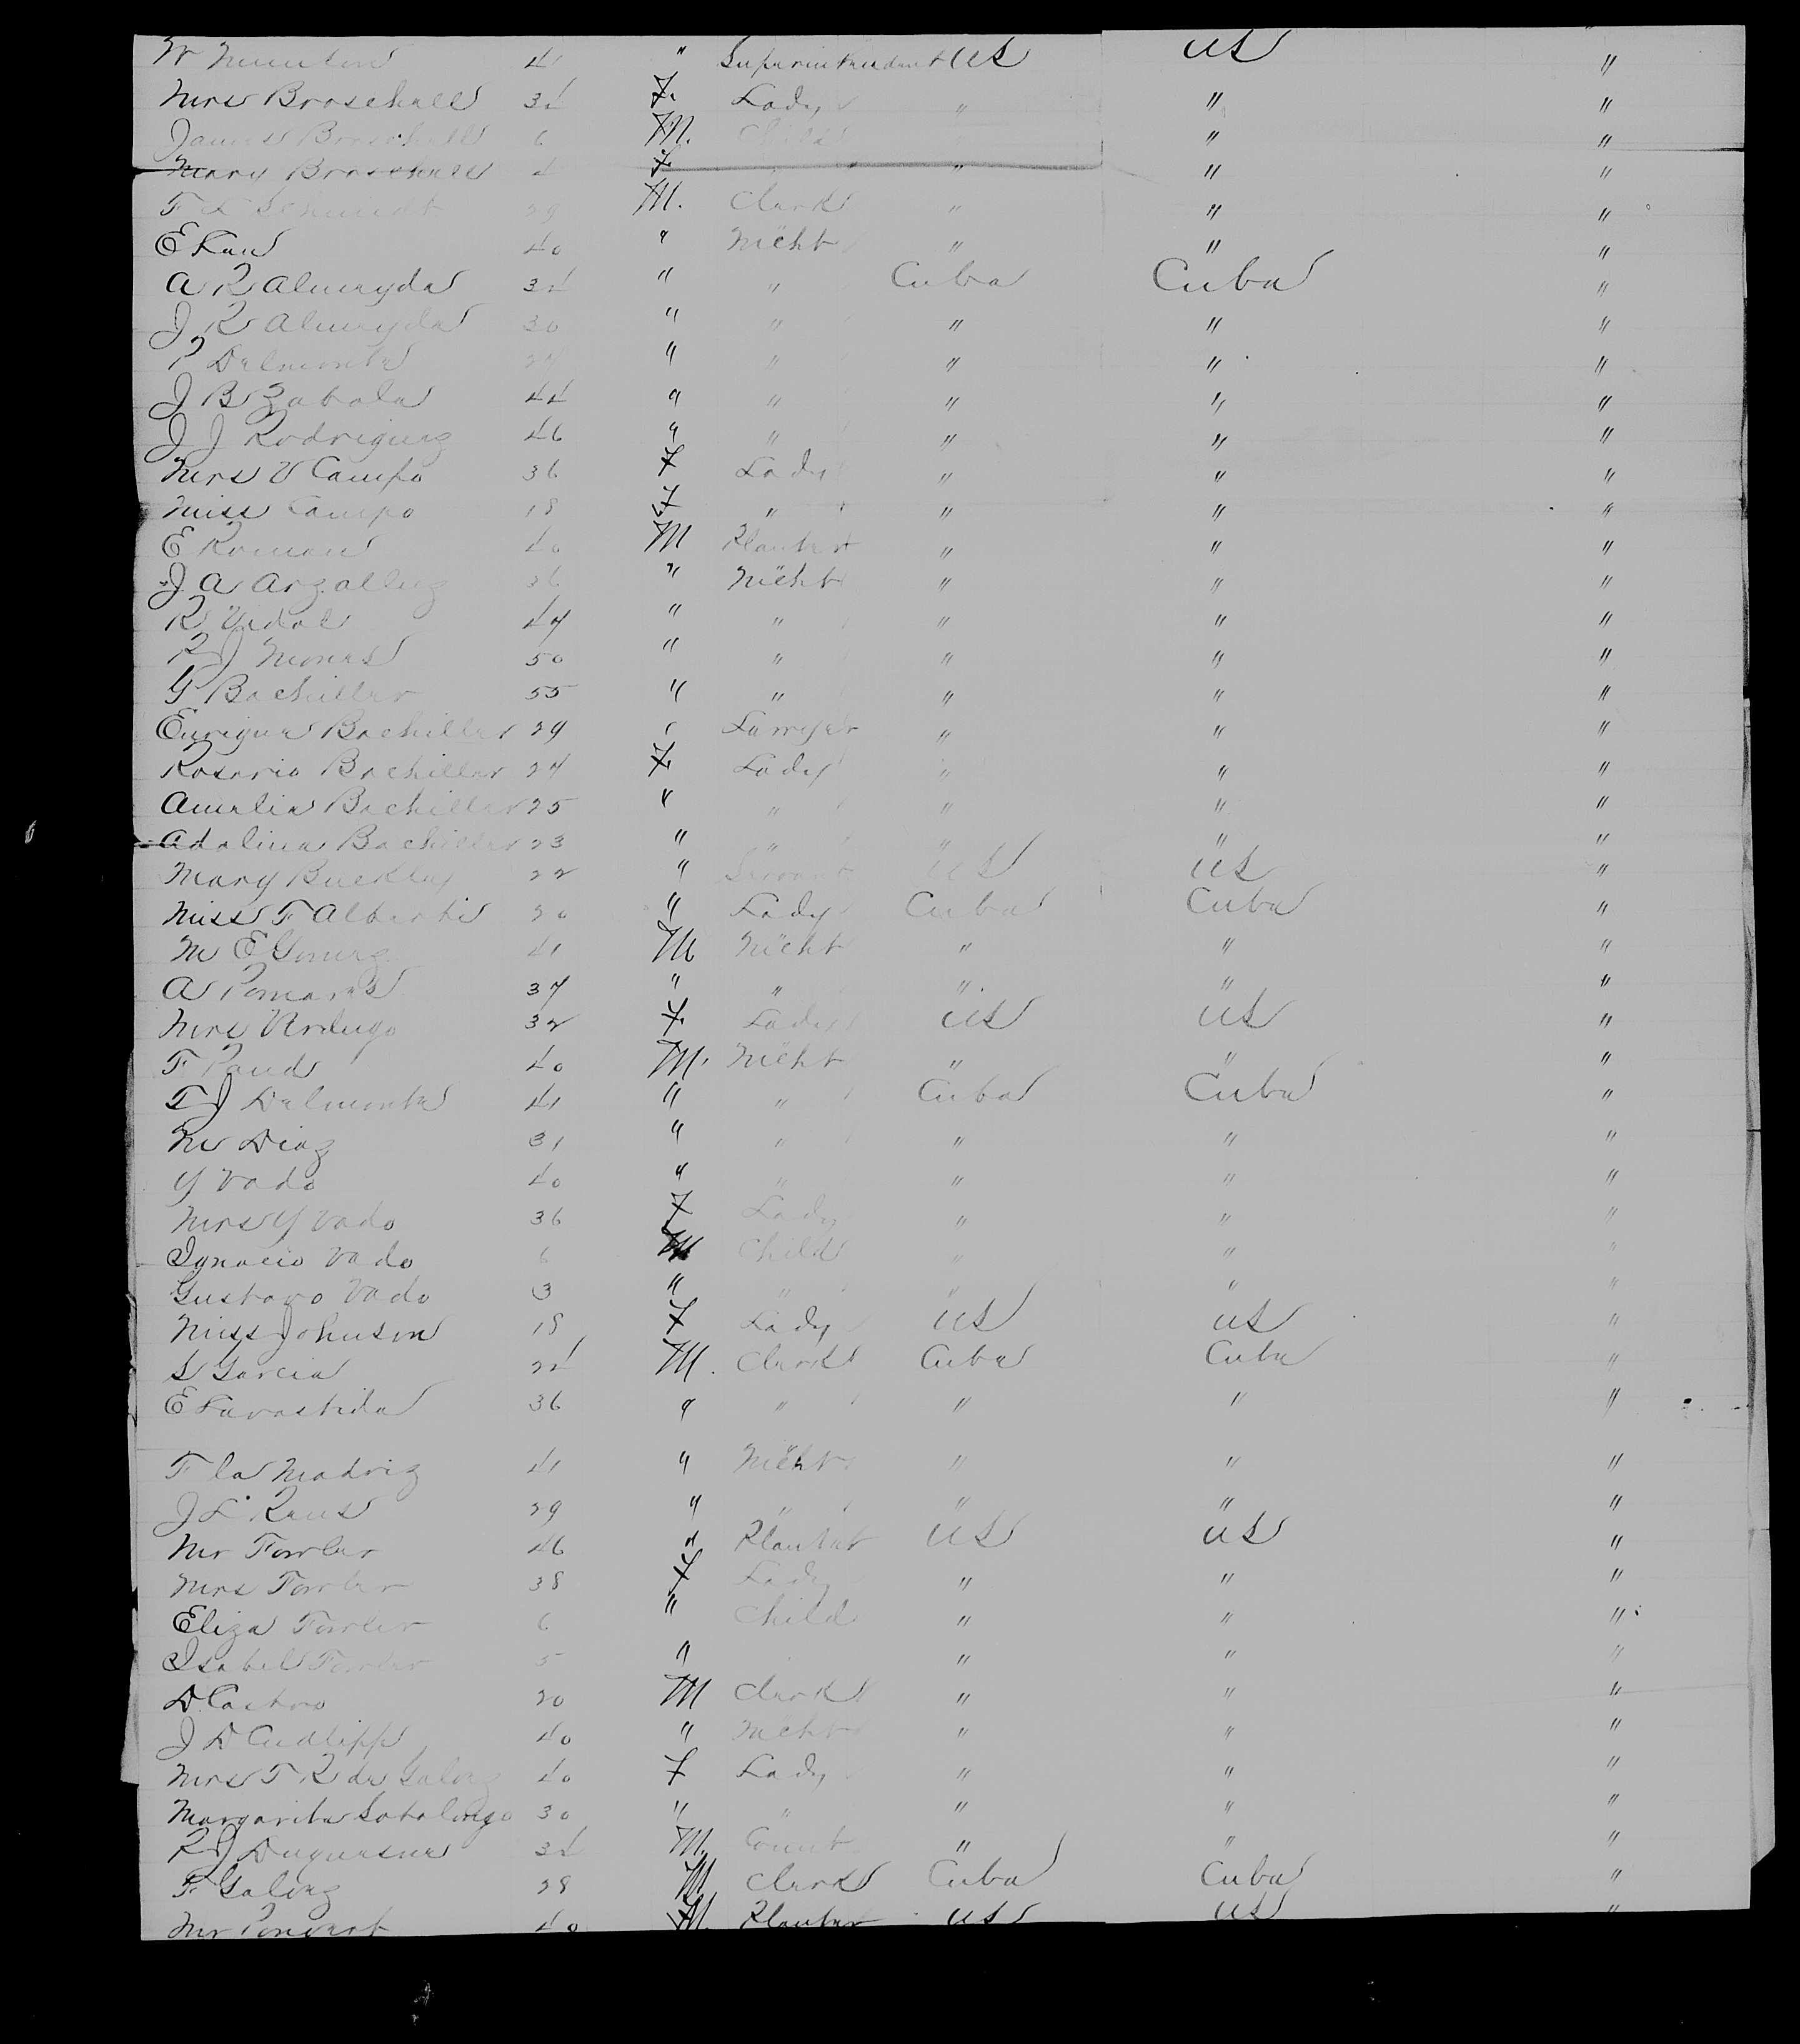 41 " Superintendent US US "
Mrs Broschell 34 F. Lady " " "
James Broschell 6 M. Child " "
Mary Broschell 4 F. " " " "
F L Schmidt 29 M. Clerk " " "
E Kan 40 " Mcht " " "
A R Almeyda 34 " " Cuba Cuba "
J R Almeyda 30 " " " " "
P Delmonte 29 " " " " "
J B Zabala 44 " " " " "
J J Rodriguez 46 " " " " "
Mrs V Campo 36 F Lady " " "
Miss Campo 18 F " " " "
E Roman 40 M Planter " " "
J A Arzallez 36 " Mcht " " "
R Vidal 47 " " " " "
P J Mones 50 " " " " "
G Bachiller 55 " " " " "
Enrique Bachiller 29 " Lawyer " " "
Rosario Bachiller 27 F. Lady " " "
Amelia Bachiller 25 " " " " "
Adelina Bachiller 23 " " " " "
Mary Buckley 22 " Servant US US "
Miss F Alberti 20 " Lady Cuba Cuba "
M E Gomez 41 M Mcht " " "
A Pomares 37 " " " " "
Mrs Verdugo 32 F. Lady US US "
F Paud 40 M. Mcht " " "
T J Delmonte 41 " " Cuba Cuba "
M Diaz 31 " " " " "
Y Vado 40 " " " " "
Mrs Y Vado 36 F Lady " " "
Ignacio Vado 6 M Child " " "
Gustavo Vado 3 " " " " "
Miss Johnson 18 F Lady US US "
S Garcia 24 M. Clerk Cuba Cuba "
E Lavastida 36 " " " " "
F la Madriz 41 " Mcht " " "
J L Raus 29 " " " " "
Mr Fowler 46 " Planter US US "
Mrs Fowler 38 F Lady " " "
Eliza Fowler 6 " Child " " "
Isabel Fowler 5 " " " "
D Castro 20 M Clerk " " "
J D Cudlipp 40 " Mcht " " "
Mrs F R de Galvez 40 F Lady " " "
Margarita Sotolongo 30 " " " " "
P J Duquesne 34 M. Count " " "
F Galvez 28 M. Clerk Cuba Cuba "
Mr Ponvert 40 M. Planter US US "